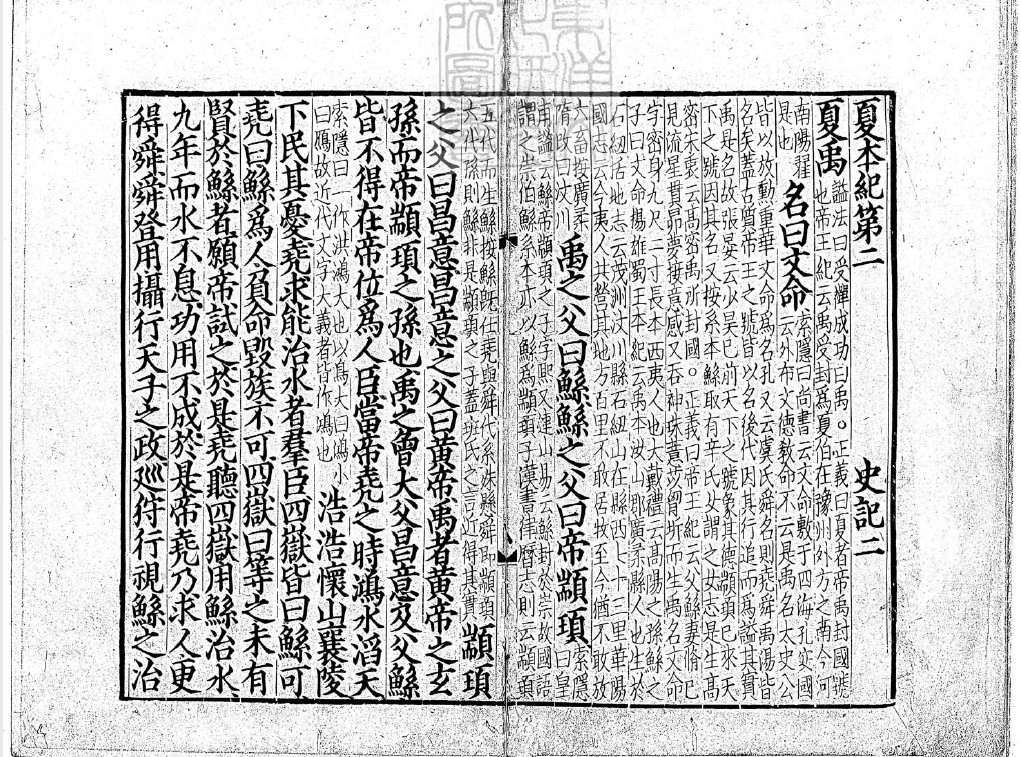 夏本紀第二　史記二
夏禹
諡法曰受禪成功曰禹○正義曰夏者帝禹封國號
也帝王紀云禹受封爲夏伯在豫州外方之南今河
南陽翟
是也
名曰文命
索隱曰尚書云文命敷于四海孔安國
云外布文德敎命不云是禹名太史公
皆以放勳重華文命爲名孔又云虞氏舜名則堯舜禹湯皆
名矣蓋古質帝王之號皆以名後代因其行追而爲諡其實
禹是名故張晏云少昊已前天下之號象其德顓頊已來天
下之號因其名又按系本鯀取有辛氏女謂之女志是生高
密宋衷云高密禹所封國○正義曰帝王紀云父鯀妻脩己
見流星貫昴夢接意感又吞神珠薏苡胷坼而生禹名文命
字密身九尺二寸長本西夷人也大戴禮云高陽之孫鯀之
子曰文命揚雄蜀王本紀云禹本汶山郡廣柔縣人也生於
石紐括地志云茂州汶川縣石紐山在縣西七十三里華陽
國志云今夷人共營其地方百里不敢居牧至今猶不敢放
六畜按廣柔
隋改曰汶川
禹之父曰鯀鯀之父曰帝顓頊
索隱
曰皇
甫謐云鯀帝顓頊之子字熙又連山易云鯀封於崇故國語
謂之崇伯鯀系本亦以鯀爲顓頊子漢書律曆志則云顓頊
五代而生鯀按鯀旣仕堯與舜代系殊懸舜即顓頊
六代孫則鯀非是顓頊之子蓋班氏之言近得其實
顓頊
之父曰昌意昌意之父曰黃帝禹者黃帝之玄
孫而帝顓頊之孫也禹之曾大父昌意及父鯀
皆不得在帝位爲人臣當帝堯之時鴻水滔天
索隱曰一作洪鴻大也以鳥大曰鴻小
曰鴈故近代文字大義者皆作鴻也
浩浩懷山襄陵
下民其憂堯求能治水者羣臣四嶽皆曰鯀可
堯曰鯀爲人負命毀族不可四嶽曰等之未有
賢於鯀者願帝試之於是堯聽四嶽用鯀治水
九年而水不息功用不成於是帝堯乃求人更
得舜舜登用攝行天子之政巡狩行視鯀之治